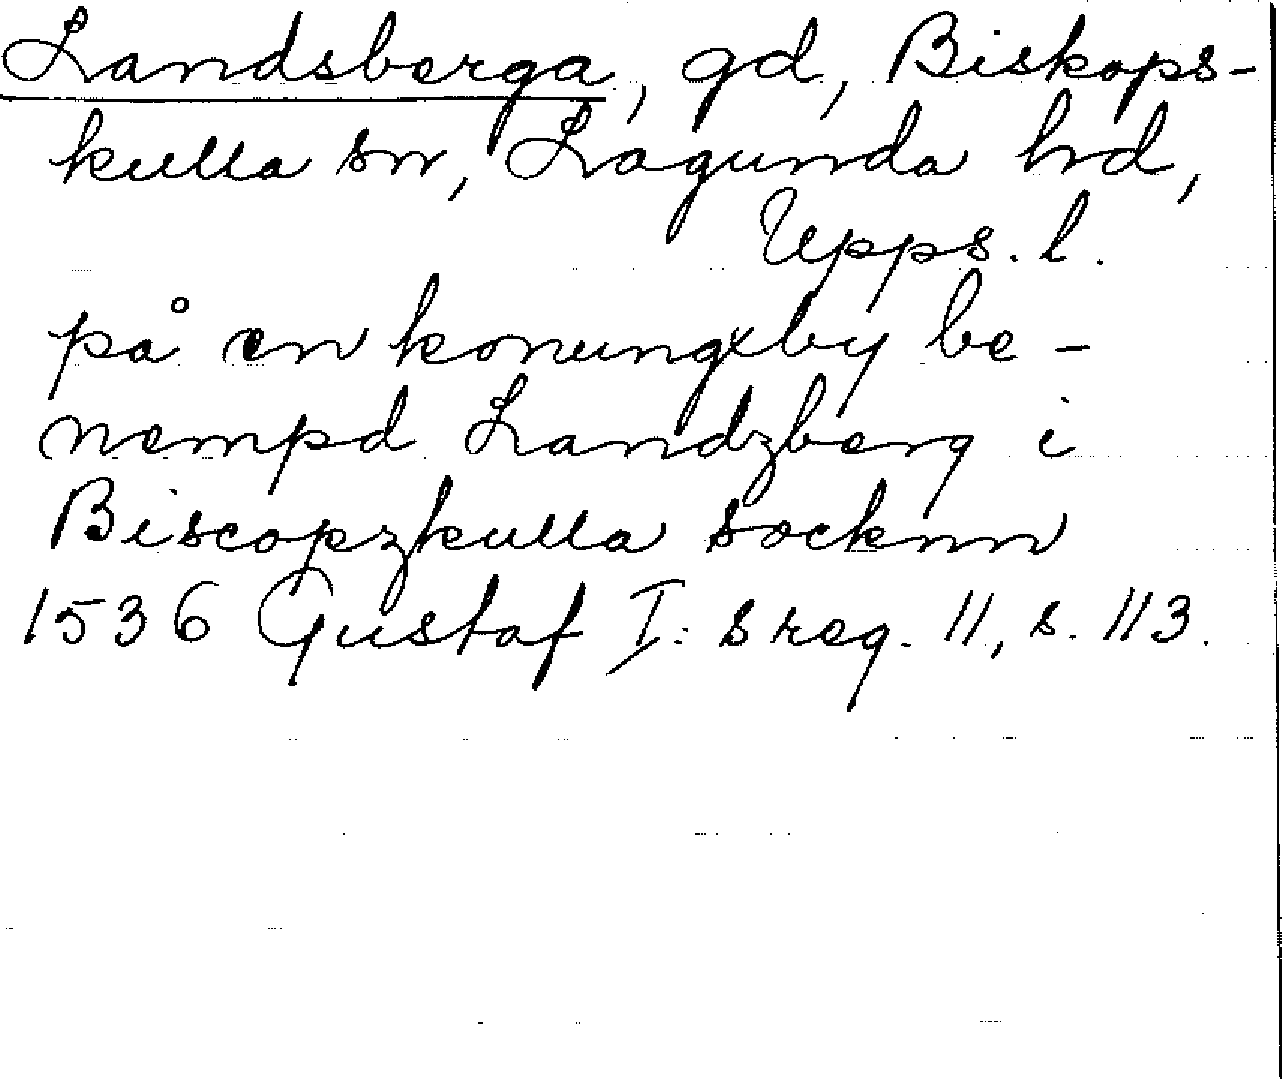 Landsberga, gd, Biskops-
kulla sn, Lagunda hd,
Upps. l.
på en konungxby be-
nempd Landzberg i
Biscopzkulla socknn
1536 Gustaf I:s reg. 11, s. 113.